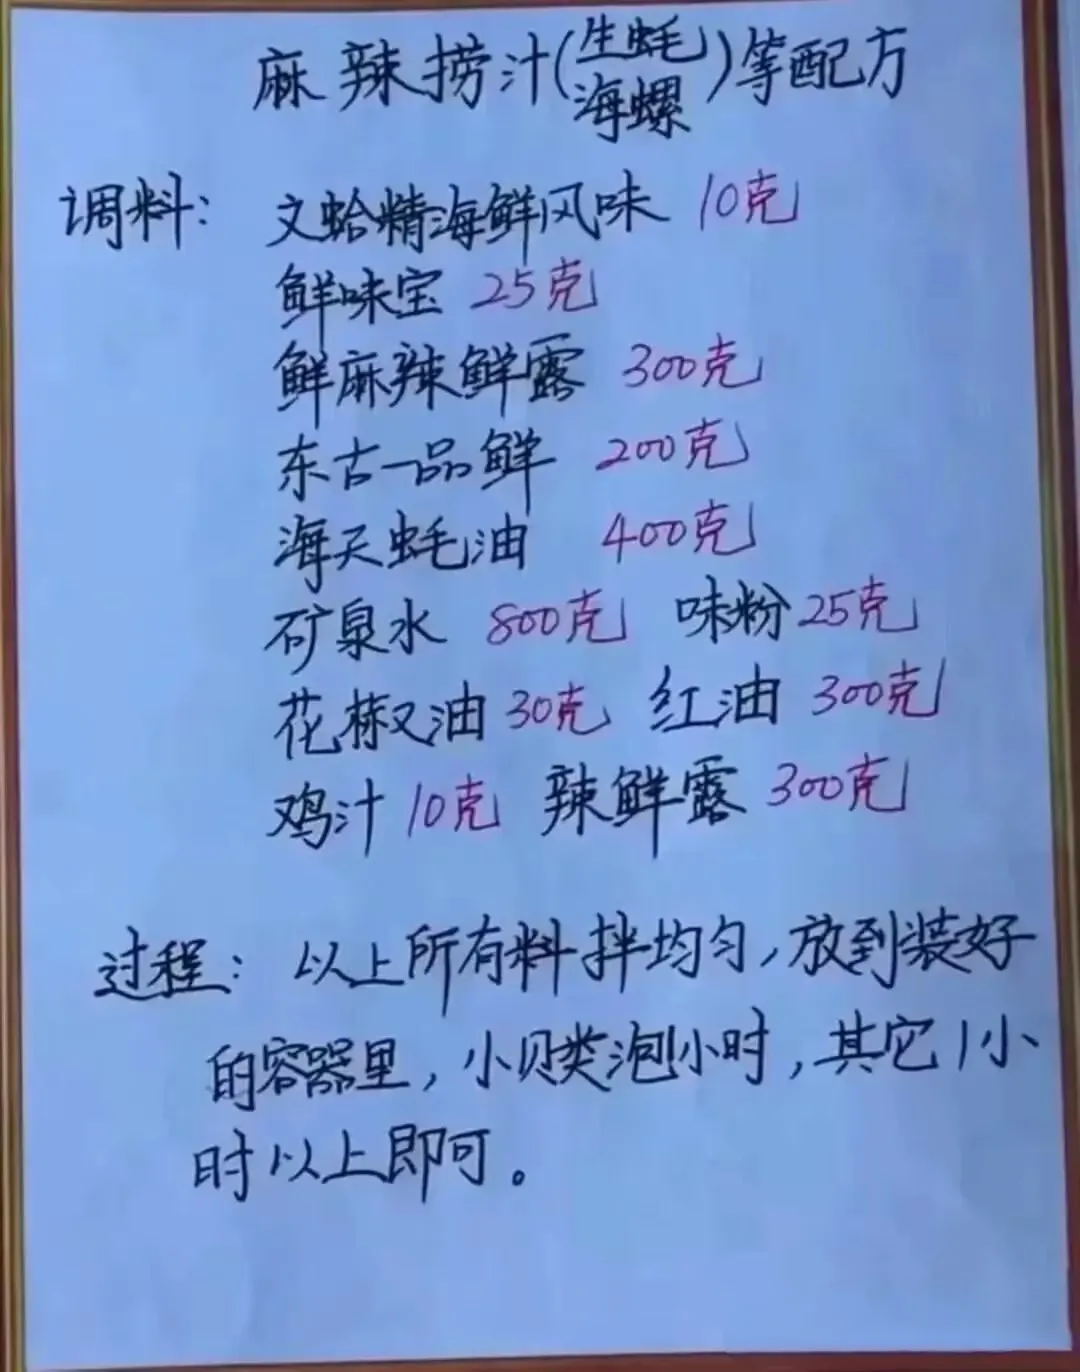 麻辣捞汁(生蚝海螺)等配方
调料: 文蛤精海鲜风味 10克
鲜味宝 25克
鲜麻辣鲜露 300克
东古一品鲜 200克
海天蚝油 400克
矿泉水 800克 味粉25克
花椒油30克 红油 300克
鸡汁10克 辣鲜露 300克
过程: 以上所有料拌均匀,放到装好
的容器里,小贝类泡1小时,其它1小
时以上即可。